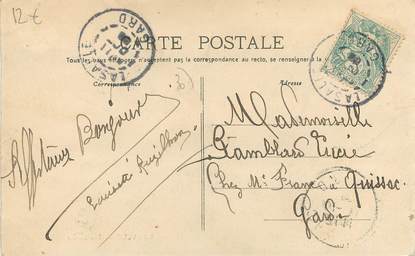 12€
CARTE POSTALE
Tous les pays étrangers n'acceptent pas la correspondance au recto, se renseigner à la
Correspondance
Adresse
LASALLE
GARD
LASALLE
GARD
30
Affectueux Bonjour
Mademoiselle
Lucie
Chez Mr France à Quissac
Gard